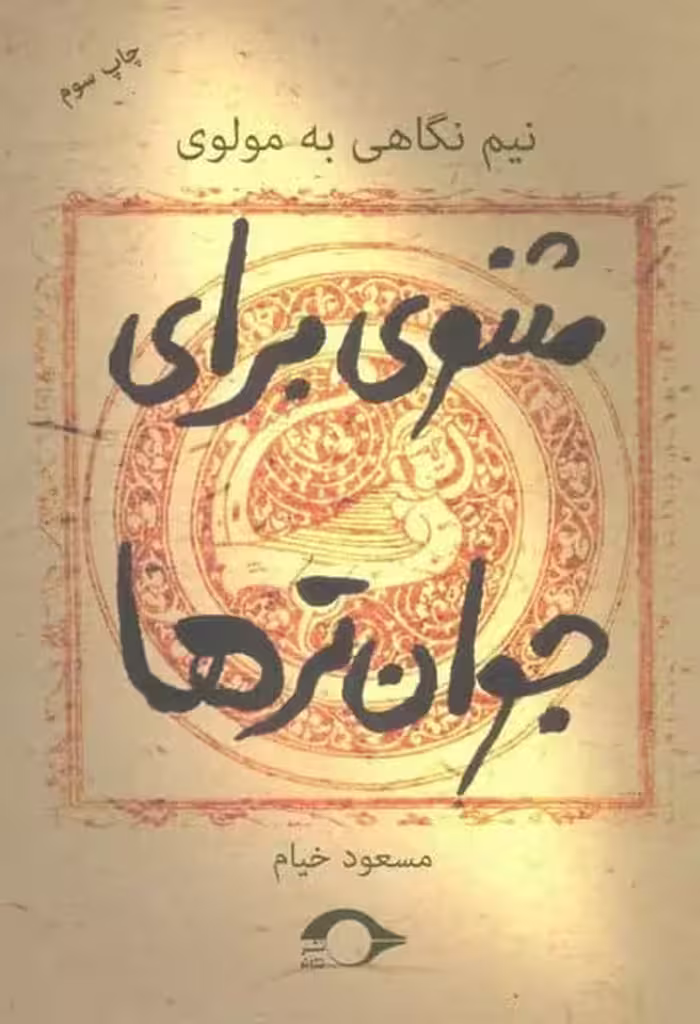 چاپ سوم
نیم نگاهی به مولوی
مثنوی برای
جوان‌ترها
مسعود خیام
نشر